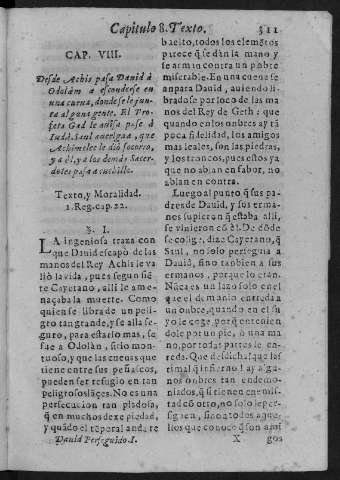 Capitulo 8. Texto. 321
CAP. VIII.
Desde Achis pasa Dauid à
Odolàm a esconderse en
una cueua, donde se le jun-
ta alguna gente. El Pro-
feta Gad le auisa pase à
Iudà. Saul auerigua, que
Achimelec le diò socorro,
y a èl, y a los demàs Sacer-
dotes pasa a cuchillo.
Texto, y Moralidad.
1. Reg. cap. 22.
§. I.
LA ingeniosa traza con
que Dauid escapò de las
manos del Rey Achis le va-
liò la vida, pues segun siẽ-
te Cayetano, alli le ame-
naçaba la muerte. Como
quien se libra de un peli-
gro tan grande, y se alla se-
guro, para estarlo mas, se
fue a Odolàn, sitio mon-
tuoso, y que las cueuas que
tiene entre sus peñascos,
pueden ser refugio en tan
peligrosos lãçes. No es una
persecucion tan piadosa,
q̃ en muchos dexe piedad,
y quãdo el temporal anda re
Dauid Perseguido I.
bacito, todos los elemẽtos
parece q̃ se dàn la mano y
se arman contra un pobre
miserable. En una cueua se
anpara Dauid, auiendo li-
bradose por loco de las ma
nos del Rey de Geth: que
quando en los onbres ay tã
poca fidelidad, los amigos
mas leales, son las piedras,
y los troncos, pues estos ya
que no ablan en fabor, no
ablan en contra.
Luego al punto q̃ sus pa-
dres de Dauid, y sus erma-
nos supieron q̃ estaba alli,
se vinieron cõ èl. De dõde
se colige, dize Cayetano, q̃
Saul, no solo perseguia a
Dauid, sino tanbien a sus
ermanos, porque lo eran.
Nũca es un lazo solo en el
que el demonio enreda a
un onbre, quando en el su
yo le coge, porq̃ entenien
dole por un pie, ò una ma
no, por todas partes le en-
reda. Que desdicha! que las
tima! que infierno! Ay algu-
nos onbres tan endemo-
niados, q̃ si tienen enemis-
tad cõ otro, no solo le per-
siguen, sino a todos aque-
llos que conoce q̃ son ami
X gos